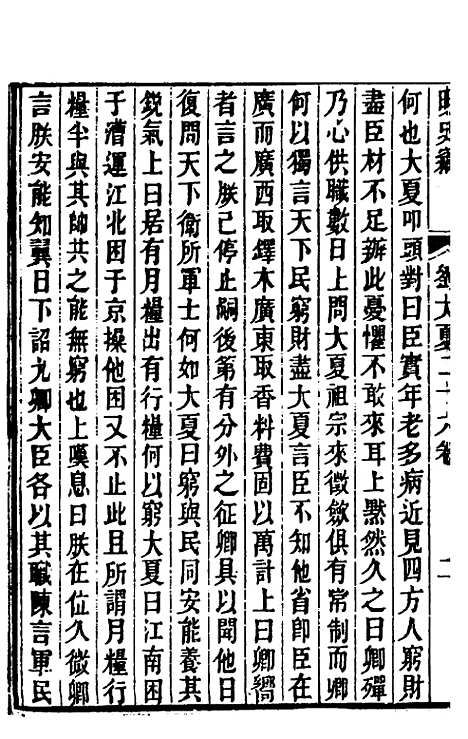 明史竊　劉大夏二十六卷　二
何也大夏叩頭對曰臣實年老多病近見四方人窮財
盡臣材不足辦此憂懼不敢來耳上黙然久之曰卿殫
乃心供職數日上問大夏祖宗來徵斂俱有常制而卿
何以獨言天下民窮財盡大夏言臣不知他省卽臣在
廣而廣西取鐸木廣東取香料費固以萬計上曰卿嚮
者言之朕已停止嗣後第有分外之征卿具以聞他日
復問天下衛所軍士何如大夏曰窮與民同安能養其
銳氣上曰居有月糧出有行糧何以窮大夏曰江南困
于漕運江北困于京操他困又不止此且所謂月糧行
糧半與其帥共之能無窮也上嘆息曰朕在位久微卿
言朕安能知翼日下詔九卿大臣各以其職陳言軍民